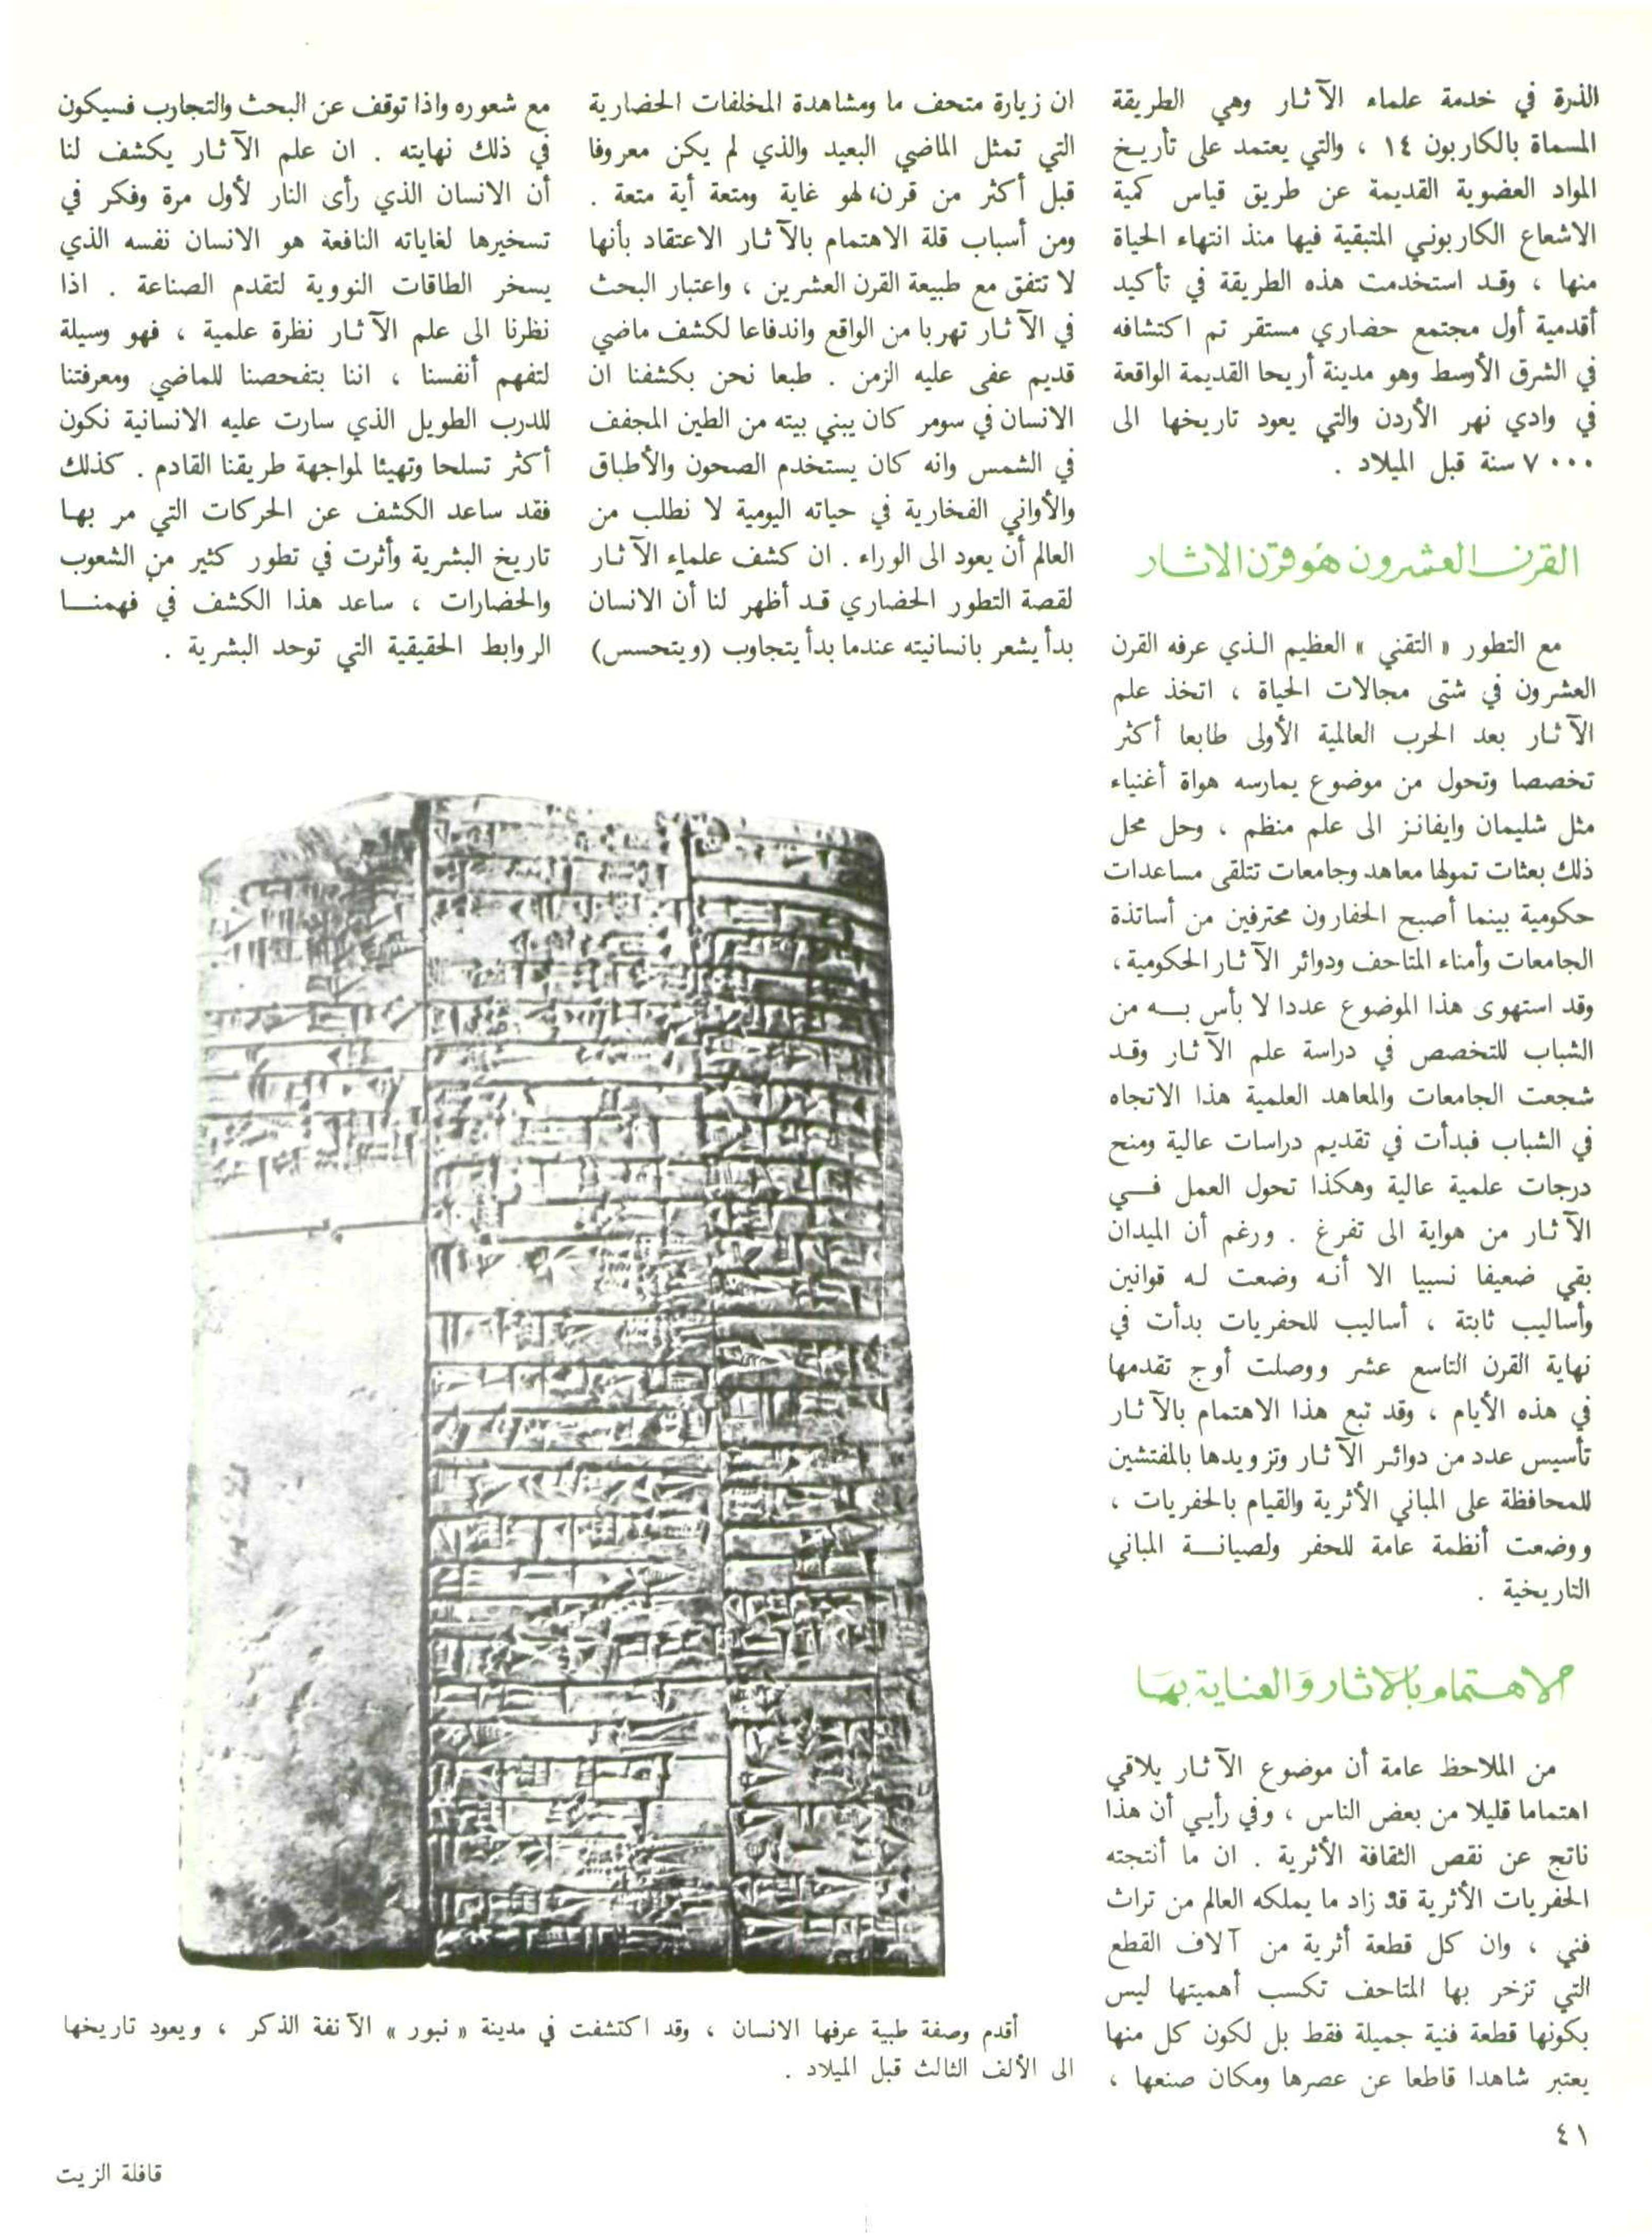 الذرة في خدمة علماء الآثار وهي الطريقة
المسماة بالكاربون ١٤ ، والتي يعتمد على تأريخ
المواد العضوية القديمة عن طريق قياس كمية
الاشعاع الكاربوني المتبقية فيها منذ انتهاء الحياة
منها ، وقد استخدمت هذه الطريقة في تأكيد
أقدمية أول مجتمع حضاري مستقر تم اكتشافه
في الشرق الأوسط وهو مدينة أريحا القديمة الواقعة
في وادي نهر الأردن والتي يعود تاريخها الى
٧٠٠٠ سنة قبل الميلاد .
القرن العشرون هو قرن الاثار
مع التطور « التقني » العظيم الذي عرفه القرن
العشرون في شتى مجالات الحياة ، اتخذ علم
الآثار بعد الحرب العالمية الأولى طابعا أكثر
تخصصا وتحول من موضوع يمارسه هواة أغنياء
مثل شليمان وايفانز الى علم منظم ، وحل محل
ذلك بعثات تمولها معاهد وجامعات تتلقى مساعدات
حكومية بينما أصبح الحفارون محترفين من أساتذة
الجامعات وأمناء المتاحف ودوائر الآثار الحكومية،
وقد استهوى هذا الموضوع عددا لا بأس به من
الشباب للتخصص في دراسة علم الآثار وقد
شجعت الجامعات والمعاهد العلمية هذا الاتجاه
في الشباب فبدأت في تقديم دراسات عالية ومنح
درجات علمية عالية وهكذا تحول العمل في
الآثار من هواية الى تفرغ . ورغم أن الميدان
بقي ضعيفا نسبيا الا أنه وضعت له قوانين
وأساليب ثابتة ، أساليب للحفريات بدأت في
نهاية القرن التاسع عشر ووصلت أوج تقدمها
في هذه الأيام ، وقد تبع هذا الاهتمام بالآثار
تأسيس عدد من دوائر الآثار وتزويدها بالمفتشين
للمحافظة على المباني الأثرية والقيام بالحفريات ،
ووضعت أنظمة عامة للحفر ولصيانة المباني
التاريخية .
الاهتمام بالاثار والعناية بها
من الملاحظ عامة أن موضوع الآثار يلاقي
اهتماما قليلا من بعض الناس ، وفي رأيي أن هذا
ناتج عن نقص الثقافة الأثرية . ان ما أنتجته
الحفريات الأثرية قد زاد ما يملكه العالم من تراث
فني ، وان كل قطعة أثرية من آلاف القطع
التي تزخر بها المتاحف تكسب أهميتها ليس
بكونها قطعة فنية جميلة فقط بل لكون كل منها
يعتبر شاهدا قاطعا عن عصرها ومكان صنعها ،
ان زيارة متحف ما ومشاهدة المخلفات الحضارية
التي تمثل الماضي البعيد والذي لم يكن معروفا
قبل أكثر من قرن، لهو غاية ومتعة أية متعة .
ومن أسباب قلة الاهتمام بالآثار الاعتقاد بأنها
لا تتفق مع طبيعة القرن العشرين ، واعتبار البحث
في الآثار تهربا من الواقع واندفاعا لكشف ماضي
قديم عفى عليه الزمن . طبعا نحن بكشفنا ان
الانسان في سومر كان يبني بيته من الطين المجفف
في الشمس وانه كان يستخدم الصحون والأطباق
والأواني الفخارية في حياته اليومية لا نطلب من
العالم أن يعود الى الوراء . ان كشف علماء الآثار
لقصة التطور الحضاري قد أظهر لنا أن الانسان
بدأ يشعر بانسانيته عندما بدأ يتجاوب (ويتحسس)
مع شعوره واذا توقف عن البحث والتجارب فسيكون
في ذلك نهايته . ان علم الآثار يكشف لنا
أن الانسان الذي رأى النار لأول مرة وفكر في
تسخيرها لغاياته النافعة هو الانسان نفسه الذي
يسخر الطاقات النووية لتقدم الصناعة . اذا
نظرنا الى علم الآثار نظرة علمية ، فهو وسيلة
لتفهم أنفسنا ، اننا بتفحصنا للماضي ومعرفتنا
للدرب الطويل الذي سارت عليه الانسانية نكون
أكثر تسلحا وتهيئا لمواجهة طريقنا القادم . كذلك
فقد ساعد الكشف عن الحركات التي مر بها
تاريخ البشرية وأثرت في تطور كثير من الشعوب
والحضارات ، ساعد هذا الكشف في فهمنا
الروابط الحقيقية التي توحد البشرية .
أقدم وصفة طبية عرفها الانسان ، وقد اكتشفت في مدينة « نبور » الآنفة الذكر ، ويعود تاريخها
الى الألف الثالث قبل الميلاد .
٤١
قافلة الزيت